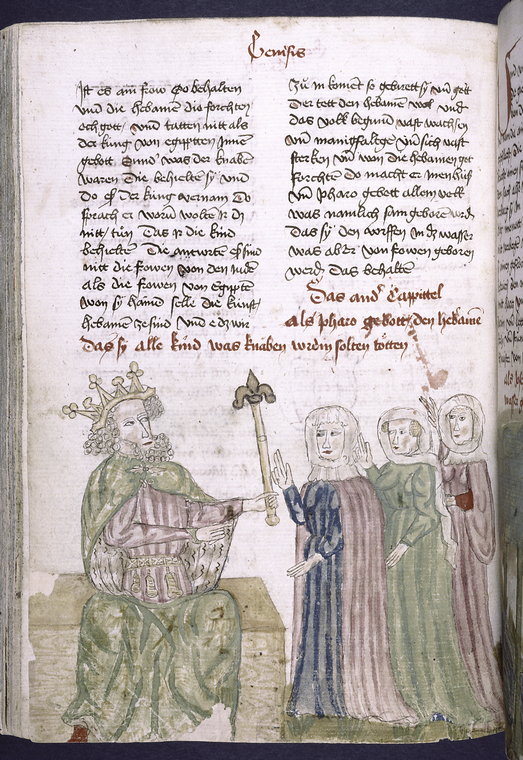 Genesis
Ist es ain frow so behalten
Vnd die hebamē die forchten
och gott / vnd tatten nitt als
der kúng von egipten Inen
gebott vnd was der knabē
waren die behieltē sÿ vnd
do es der kúng vernam do
sprach er worū woltē ir dz
nitt / tůn Das ir die kind
behieltē Die antwurtē es sind
nitt die frowen von den Judē
als die frowen von Egiptē
won sÿ hannd selbs die kunst
hebamē ze sind vnd e dz wir
zů in koment so geberett sÿ vn̄ gott
Der tett den hebamē wol vnd
das volk begund vast wachsē
vn̄ manigfaltge vn̄ sich vast
sterken vn̄ won die hebamē got
forchtē Do macht er inen hús
vn̄ pharo gebott allem volk
was namlich sun geborē werdē
Das sÿ den wurffen in dz wasser
was aber von frowen geborē
werdē Das behaltē
Das and' Cappittel
Als pharo gebott den hebamē
das sÿ alle kind was knaben wurdin solten tötten